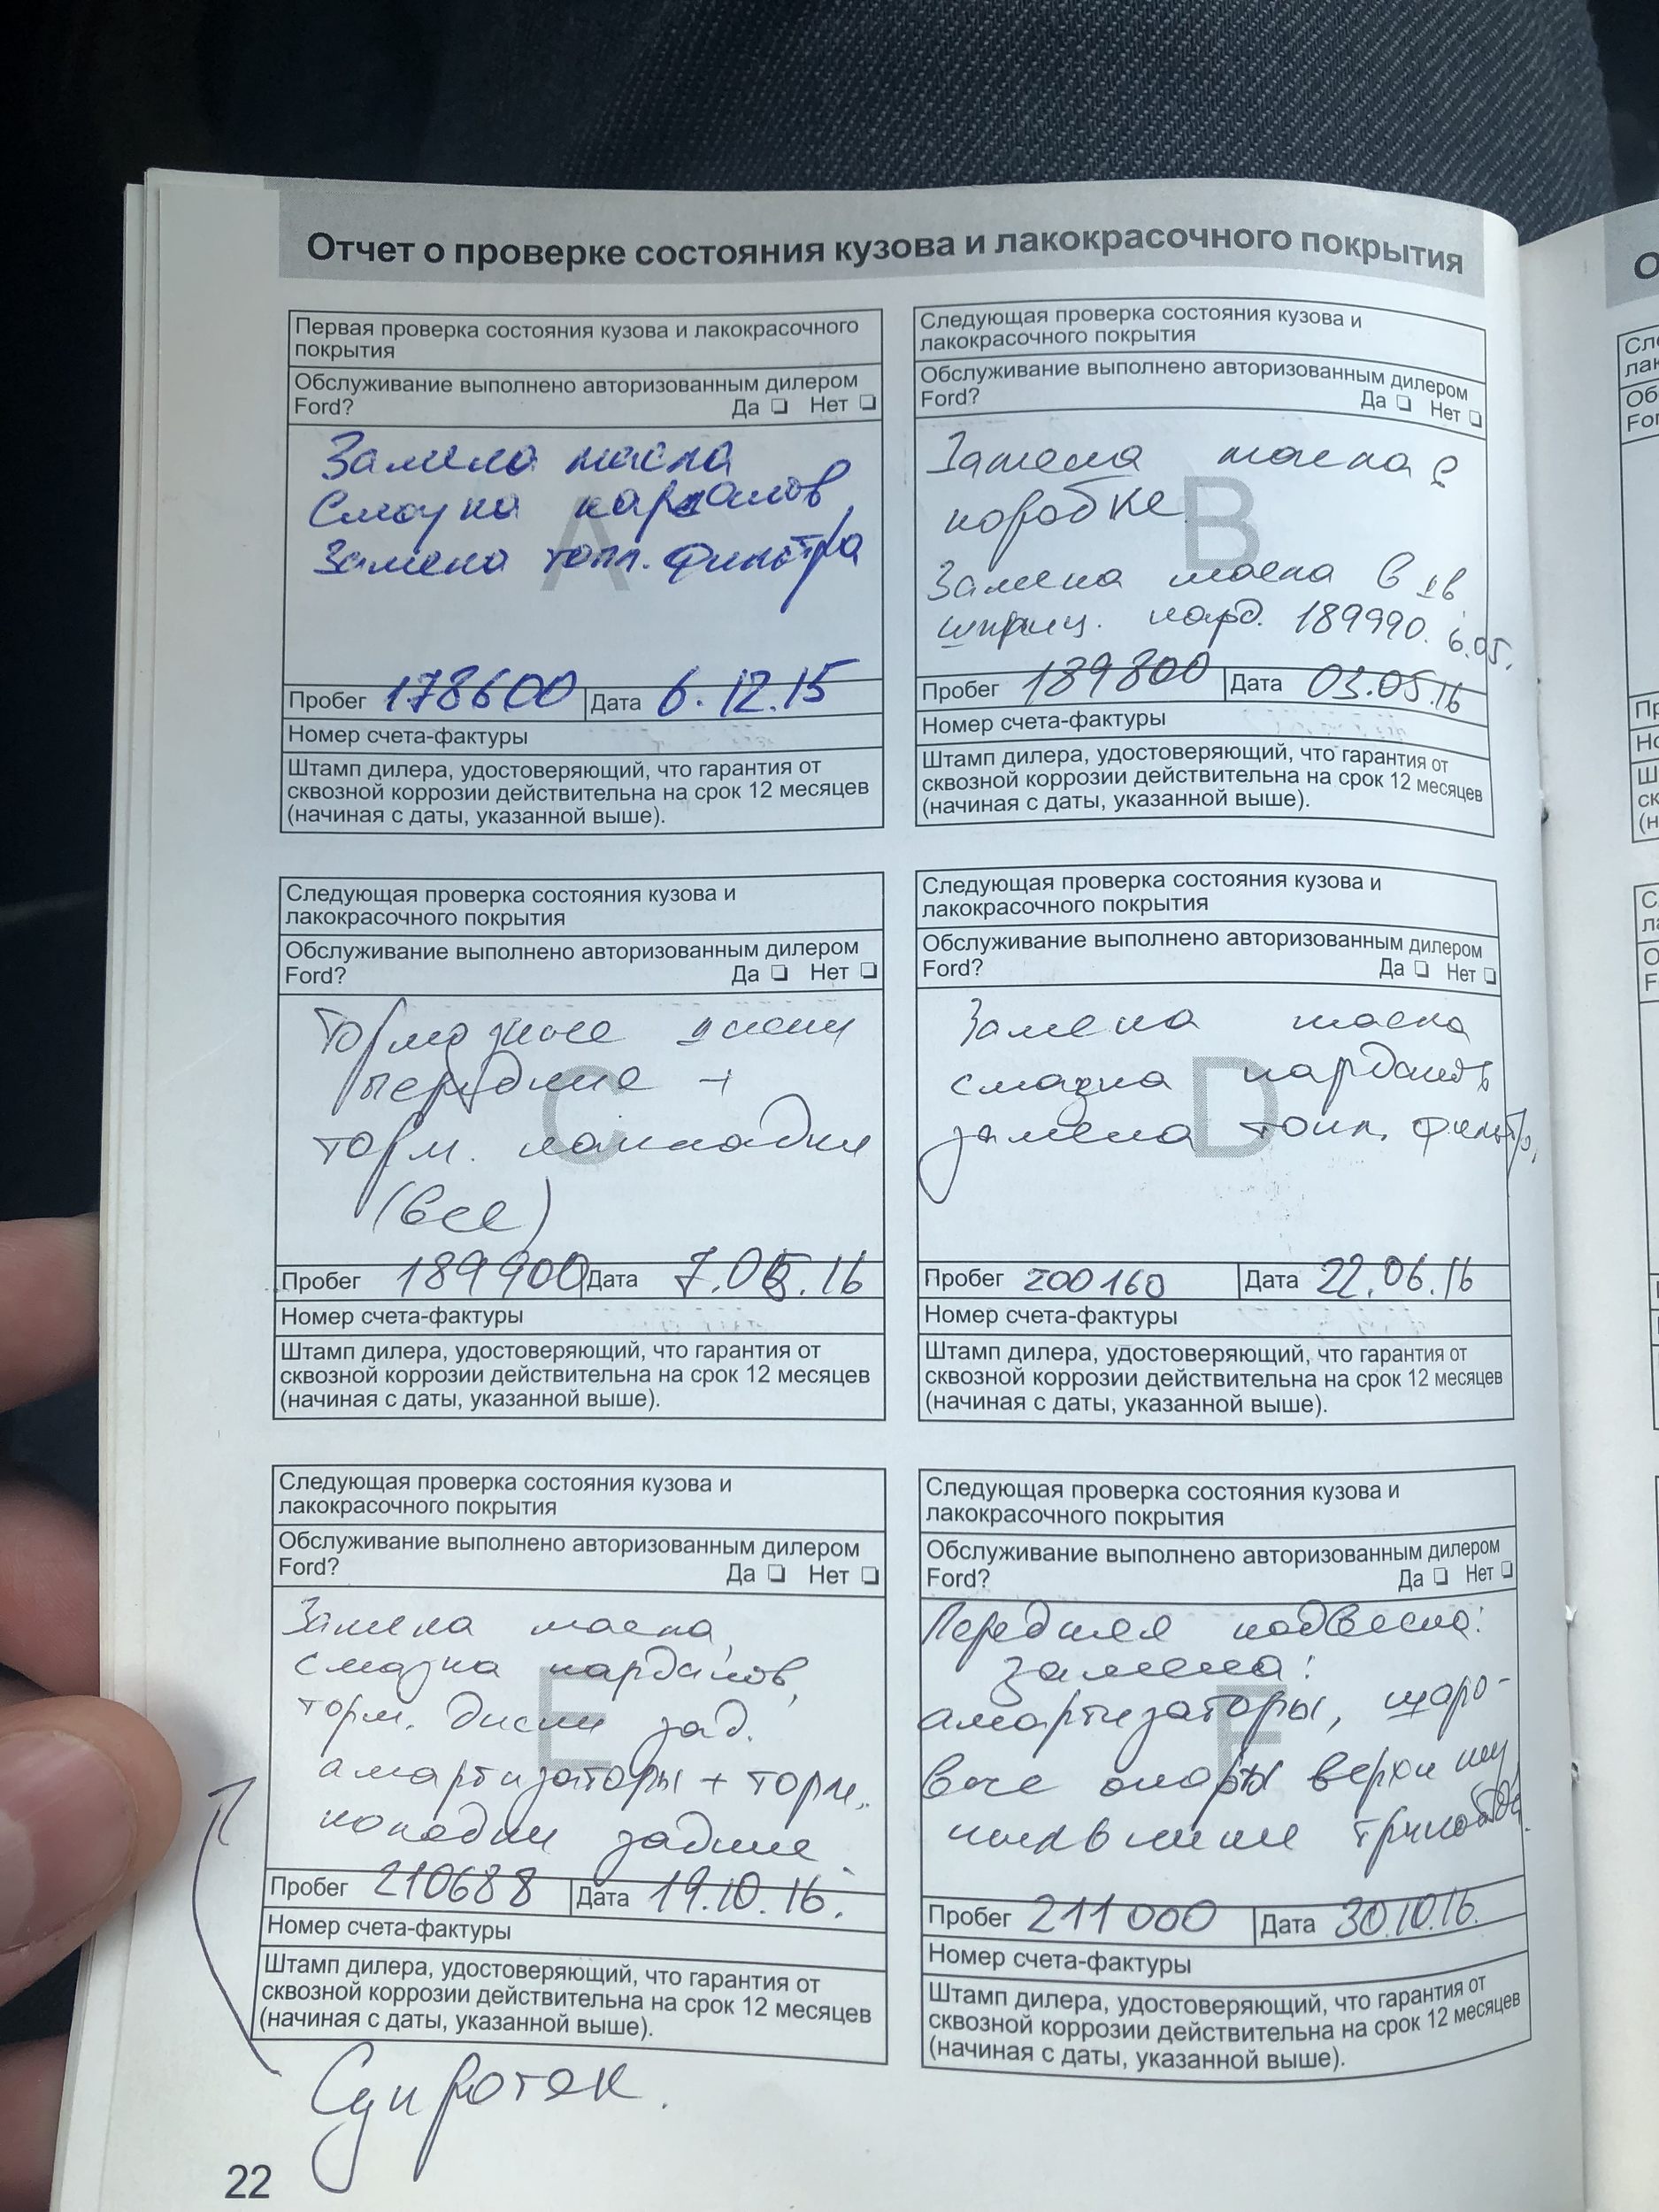 Отчет о проверке состояния кузова и лакокрасочного покрытия
Первая проверка состояния кузова и лакокрасочного
покрытия
Обслуживание выполнено авторизованным дилером
Ford?
Да ❑ Нет ❑
A
Замена масла
Смазка карданов,
Замена топл. фильтра
Пробег 178600 Дата 6.12.15
Номер счета-фактуры
Штамп дилера, удостоверяющий, что гарантия от
сквозной коррозии действительна на срок 12 месяцев
(начиная с даты, указанной выше).
Следующая проверка состояния кузова и
лакокрасочного покрытия
Обслуживание выполнено авторизованным дилером
Ford?
Да ❑ Нет ❑
B
Замена масла в
коробке
Замена масла в дв.
шприц. кард. 189990. 6.05.
Пробег 189800 Дата 03.05.16
Номер счета-фактуры
Штамп дилера, удостоверяющий, что гарантия от
сквозной коррозии действительна на срок 12 месяцев
(начиная с даты, указанной выше).
Следующая проверка состояния кузова и
лакокрасочного покрытия
Обслуживание выполнено авторизованным дилером
Ford?
Да ❑ Нет ❑
C
Тормозные диски
передние +
торм. колодки
(все)
Пробег 189900 Дата 7.05.16
Номер счета-фактуры
Штамп дилера, удостоверяющий, что гарантия от
сквозной коррозии действительна на срок 12 месяцев
(начиная с даты, указанной выше).
Следующая проверка состояния кузова и
лакокрасочного покрытия
Обслуживание выполнено авторизованным дилером
Ford?
Да ❑ Нет ❑
D
Замена масла
смазка карданов
замена топл. фильтр.
Пробег 200160 Дата 22.06.16
Номер счета-фактуры
Штамп дилера, удостоверяющий, что гарантия от
сквозной коррозии действительна на срок 12 месяцев
(начиная с даты, указанной выше).
Следующая проверка состояния кузова и
лакокрасочного покрытия
Обслуживание выполнено авторизованным дилером
Ford?
Да ❑ Нет ❑
E
Замена масла,
смазка карданов,
торм. диски зад.
амартизаторы + торм.
колодки задние.
Пробег 210688 Дата 19.10.16.
Номер счета-фактуры
Штамп дилера, удостоверяющий, что гарантия от
сквозной коррозии действительна на срок 12 месяцев
(начиная с даты, указанной выше).
Супротек.
Следующая проверка состояния кузова и
лакокрасочного покрытия
Обслуживание выполнено авторизованным дилером
Ford?
Да ❑ Нет ❑
F
Передняя подвеска:
замена:
амартизаторы, шаро-
вые опоры верхн
Пробег 211000 Дата 30.10.16.
Номер счета-фактуры
Штамп дилера, удостоверяющий, что гарантия от
сквозной коррозии действительна на срок 12 месяцев
(начиная с даты, указанной выше).
22